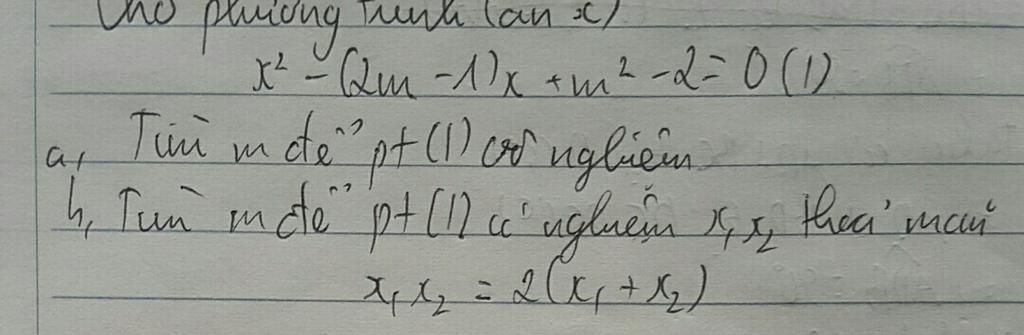 Cho phương trình (ẩn x)
x² - (2m - 1)x + m² - 2 = 0 (1)
a, Tìm m để pt (1) có nghiệm
b, Tìm m để pt (1) có nghiệm x₁, x₂ thoả mãn
x₁x₂ = 2(x₁ + x₂)